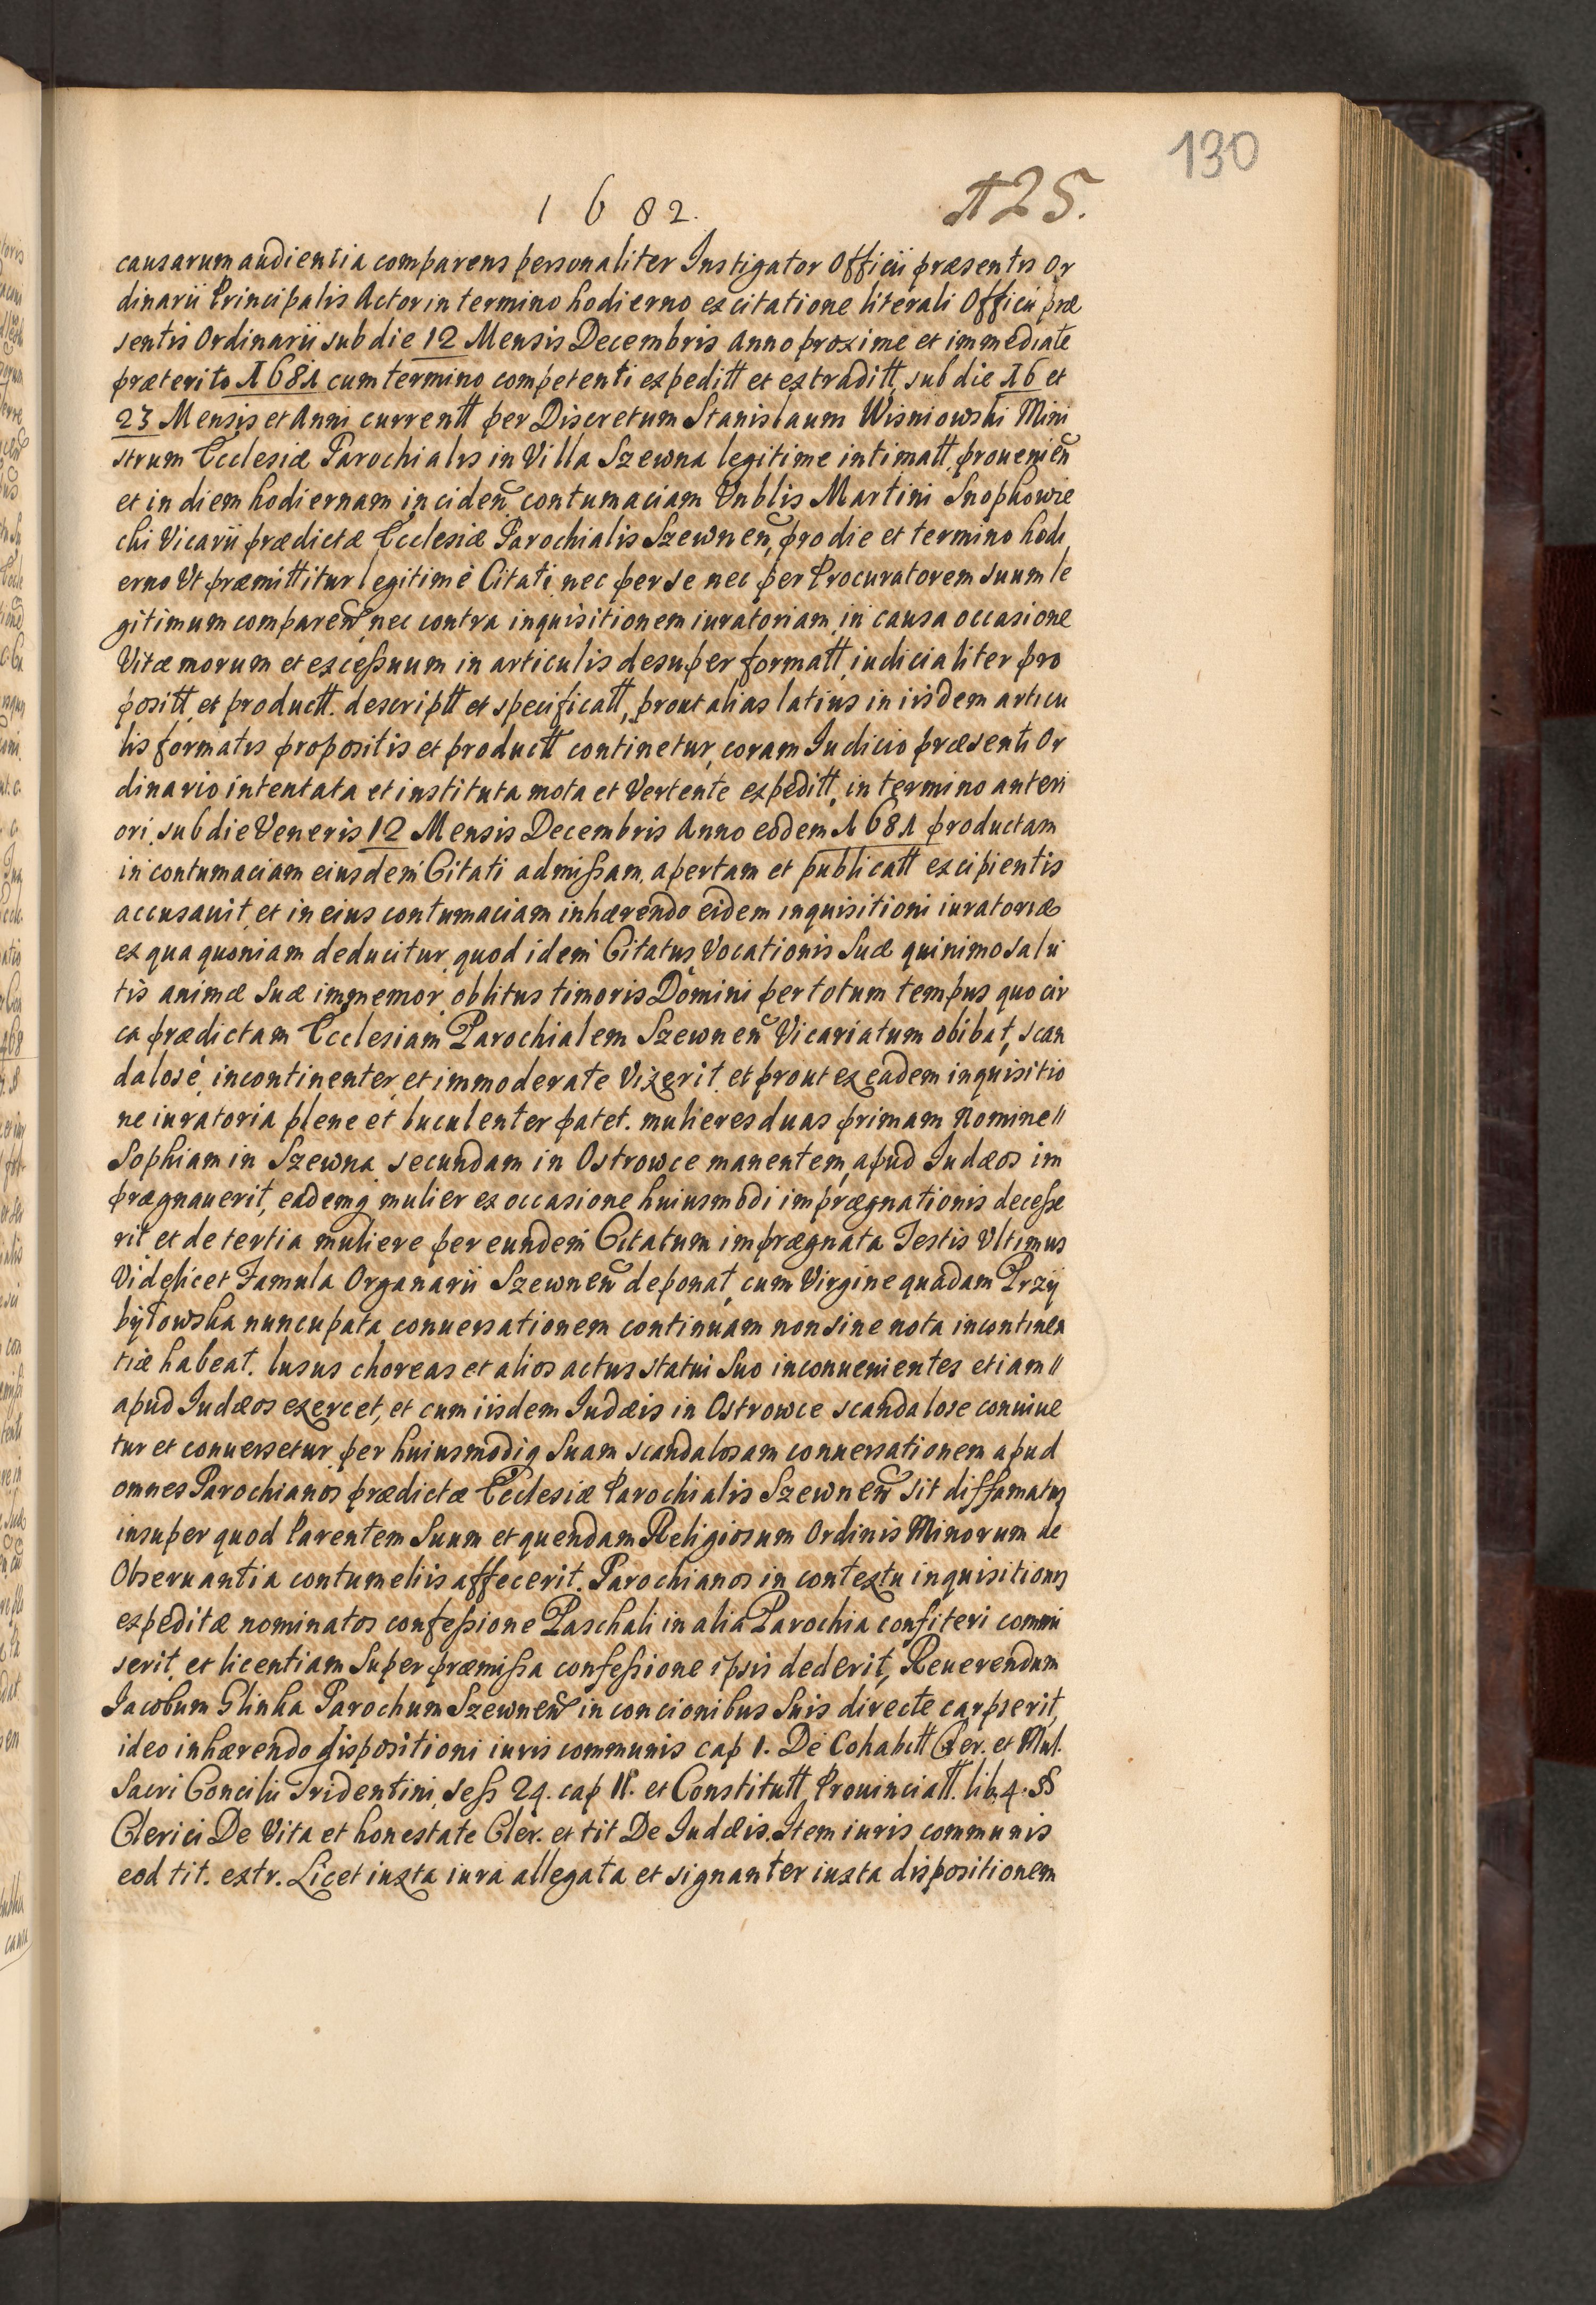 130
1682.
125.
causarum audientia comparens personaliter Instigator Officii præsentis Or
dinarii Principalis Actor in termino hodierno ex citatione literali Officii præ
sentis Ordinarii sub die 12 Mensis Decembris Anno proxime et immediate
præterito 1681 cum termino competenti expeditt et extraditt, sub die 16 et
23 Mensis et Anni currentt per Discretum Stanislaum Wisniowski Mini
strum Ecclesiæ Parochialis in Villa Szewna legitime intimatt, prouenien
et in diem hodiernam inciden contumaciam Vnblis Martini Snophowie
chi Vicarii prædictæ Ecclesiæ Parochialis Szewnen, pro die et termino hodi
erno Vt præmittitur legitimè Citati nec per se nec per Procuratorem suum le
gitimum comparen, nec contra inquisitionem iuratoriam, in causa occasione
Vitæ morum et excessuum in articulis desuper formatt, iudicialiter pro
positt et productt. descriptt et specificatt, prout alias latius in iisdem articu
lis formatis propositis et productt continetur, coram Iudicio præsenti Or
dinario intentata et instituta mota et Vertente expeditt, in termino anteri
ori, sub die Veneris 12 Mensis Decembris Anno eodem 1681 productam
in contumaciam eiusdem Citati admissam, apertam et publicatt excipientis
accusauit, et in eius contumaciam inhærendo eidem inquisitioni iuratoriæ
ex qua quoniam deducitur, quod idem Citatus Vocationis Suæ quinimo salu
tis animæ Suæ immemor, oblitus timoris Domini per totum tempus quo cir
ca prædictam Ecclesiam Parochialem Szewnen Vicariatum obibat, scan
dalosè, incontinenter, et immoderate Vixerit, et prout ex eadem inquisitio
ne iuratoria plene et luculenter patet. mulieres duas primam Nomine //
Sophiam in Szewna, secundam in Ostrowce manentem, apud Iudæos im
prægnauerit, eademq mulier ex occasione huiusmodi imprægnationis decesse
rit et de tertia muliere per eundem Citatum imprægnata Testis Vltimus
Videlicet Famula Organarii Szewnen deponat, cum Virgine quadam Przy
bytowska nuncupata conuersationem continuam non sine nota incontinen
tiæ habeat. lusus choreas et alios actus statui Suo inconuenientes etiam //
apud Iudæos exercet, et cum iisdem Iudæis in Ostrowce scandalose conuiue
tur et conuersetur, per huiusmodiq Suam scandalosam conuersationem apud
omnes Parochianos prædictæ Ecclesiæ Parochialis Szewnen sit diffamatus
insuper quod Parentem Suum et quendam Religiosum Ordinis Minorum de
Obseruantia contumeliis affecerit. Parochianos in contextu inquisitionis
expeditæ nominatos confessione Paschali in alia Parochia confiteri commi
serit, et licentiam Super præmissa confessione ipsis dederit, Reuerendum
Iacobum Glinka Parochum Szewnen in concionibus Suis directe carpserit,
ideo inhærendo dispositioni iuris communis cap 1. De Cohabitt Cler. et Mul.
Sacri Concilii Tridentini, sess 24. cap 11. et Constitutt Prouinciatt. lib. 4. §§
Clerici De Vita et honestate Cler. et tit De Iudæis. Item iuris communis
eod tit. extr. Licet iuxta iura allegata et signanter iuxta dispositionem